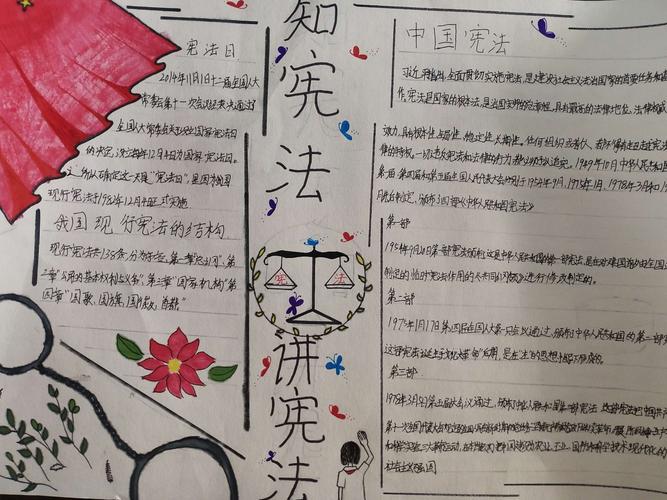 知宪法
宪
法
讲宪法
宪法日
2014年11月1日十二届全国人大
常委会第十一次会议表决通过了
全国人大常委会关于设立国家宪法日
的决定,决定将每年12月4日为国家宪法日。
之所以确定这一天是“宪法日”,是因为我国
现行宪法于1982年12月4日正式实施
我国现行宪法的结构
现行宪法共138条分为序言,第一章“总纲”,第
二章“公民的基本权利与义务”,第三章“国家机构”第
四章“国歌、国旗、国徽、首都。”
中国宪法
全面贯彻实施宪法,是建设社会主义法治国家的首要任务和基础
作,宪法是国家的根本法,是治国安邦的总章程,具有最高的法律地位、法律权威
效力,具有根本性、全局性、稳定性、长期性。任何组织或者个人,都不得有超越宪法
律的特权。一切违反宪法和法律的行为,都必须予以追究。1949年10月中华人民共和国
第一届、第四届和第五届全国人民代表大会分别于1954年9月、1975年1月、1978年3月和1
月先后制定、颁布了四部《中华人民共和国宪法》
第一部
1954年9月20日第一部宪法颁布,这是中华人民共和国第一部宪法,是在对建国前由全国
制定的临时宪法作用的《共同纲领》进行修改制定的。
第二部
1975年1月17日第四届全国人大第一次会议通过,颁布了中华人民共和国的第二部
这部宪法诞生于文化大革命后期,是在“左”的思想
第三部
1978年3月5日第五届
社会主义强国